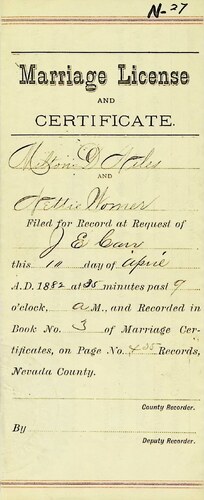 N-27
Marriage License
AND
CERTIFICATE.
Milton D Hiles
AND
Nettie Womer
Filed for Record at Request of
J E Carr
this 10 day of April
A.D. 1882 at 35 minutes past 9
o'clock, a M., and Recorded in
Book No. 3 of Marriage Cer-
tificates, on Page No. 435 Records,
Nevada County.
County Recorder.
By
Deputy Recorder.